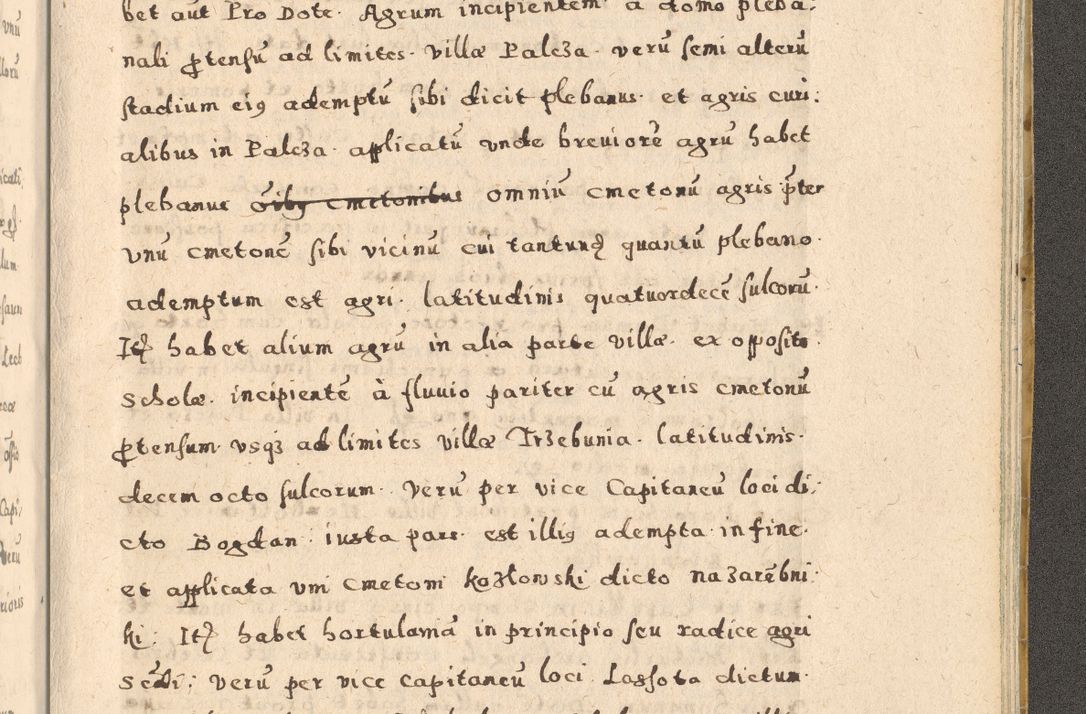 bet aut Pro Dote. Agrum incipientem a domo pleba:
nali ꝓtensũ ad limites villæ Palcza. verũ semi alterũ
stadium eiꝰ ademptũ sibi dicit plebanus et agris curi:
alibus in Palcza applicatũ unde breuiorẽ agrũ habet
plebanus oĩbꝰ cmetonibus omniũ cmetonũ agris p̃ter
vnũ cmetonẽ sibi vicinũ cui tantundẽ quantũ plebano
ademptum est agri. latitudinis quatuordecẽ sulcorũ.
Itẽ habet alium agrũ in alia parte villæ ex opposito
scholæ incipientẽ à fluuio pariter cũ agris cmetonũ
ꝓtensum vsqꝫ ad limites villæ Trzebunia. latitudinis.
decem octo sulcorum. Verũ per vice Capitaneũ loci di:
cto Bogdan iusta pars est illiꝰ adempta in fine
et applicata vni cmetoni kozłowski dicto nazarẽbni:
ki: Itẽ habet hortulaniã in principio seu radice agri
verũ per vice capitaneũ loci Lassota dictum